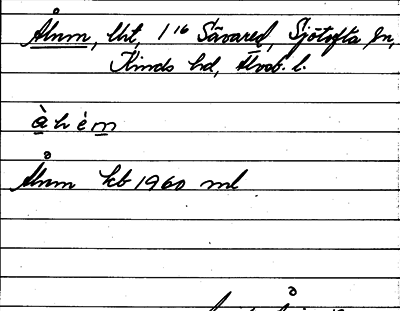 Ånm, lht, 1¹⁶ Sävared, Sjötofta sn,
Kinds hd, Älvsb. l.
àhèm
Ånm kb 1960 ml